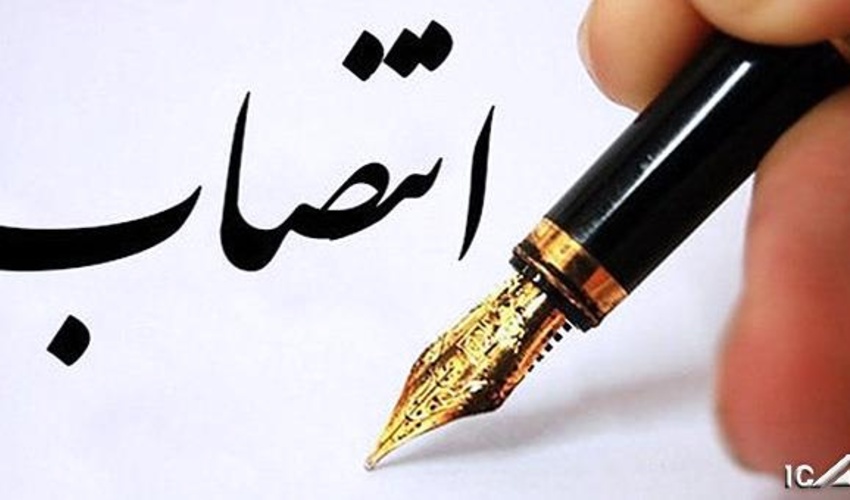 انتصاب
IC